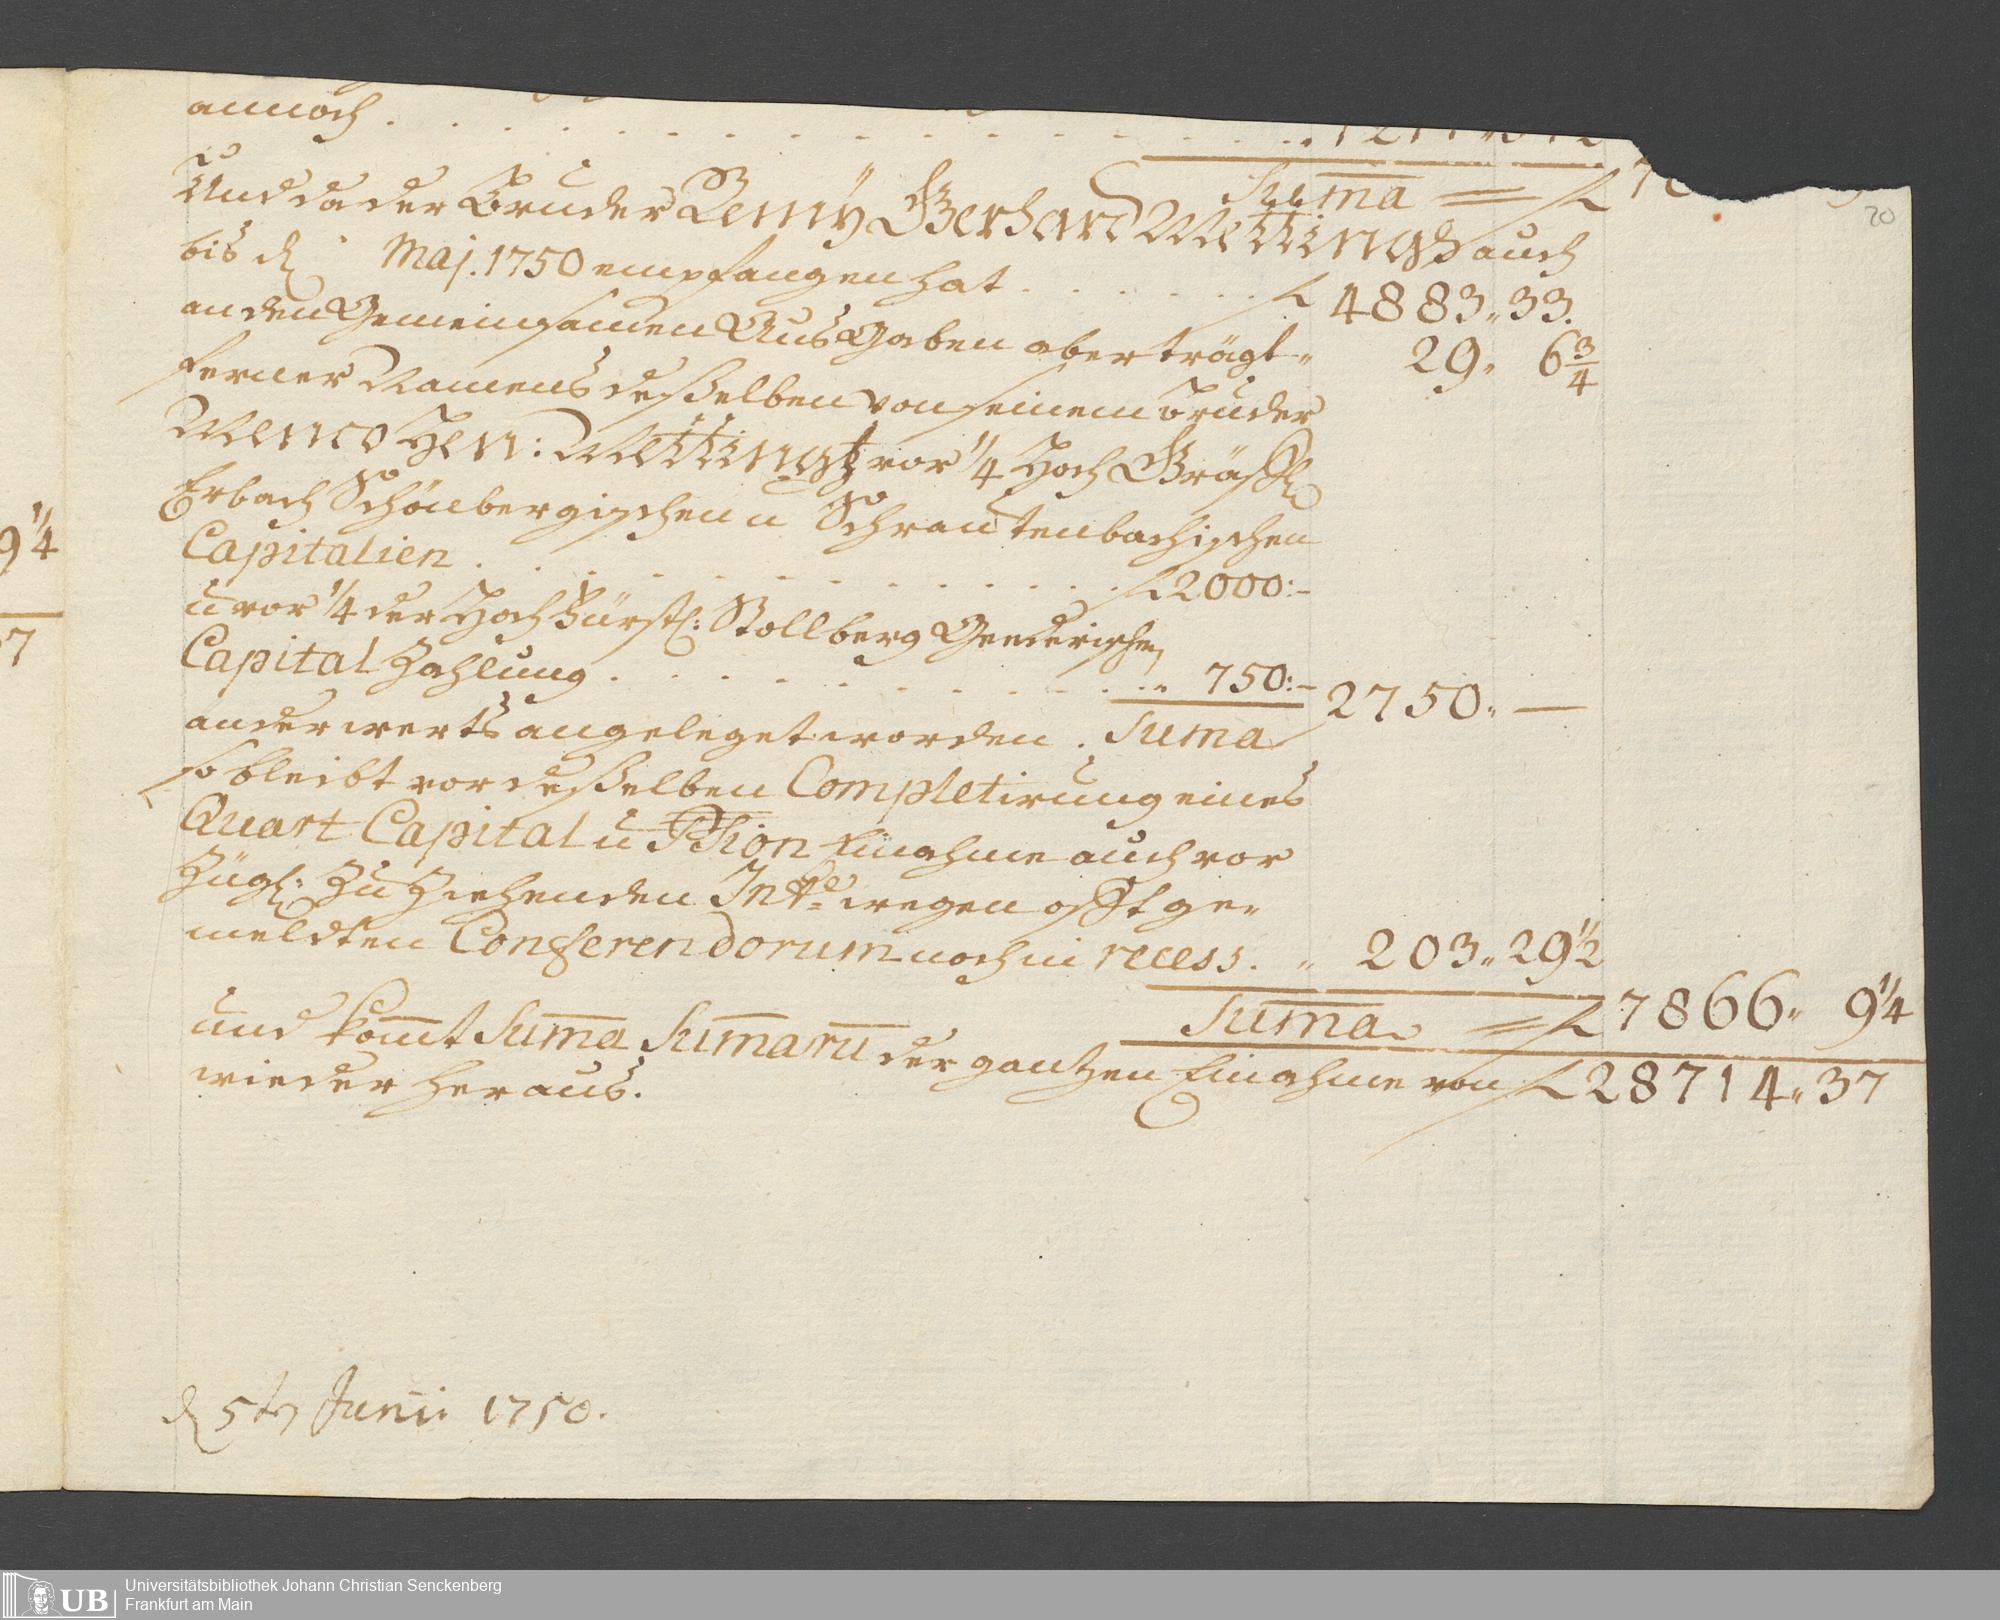 annoch . . . . . . . . . . . . . . . .
Suma = f
20
Und da der Bruder Remÿ Gerhard Mettingh auch
bis d. Maj. 1750 empfangen hat . . . . . . f 4883„ 33.
an den Gemeinsamen Aus Gaben aber trägt „ 29„ 6 3/4
ferner Namens desselben von seinem Bruder
Menco Hen: Mettingh vor 1/4 Hoch Gräffl
Erbach Schönbergischen u Schrautenbachischen
Capitalien . . . . . . . . . . . . . f 2000:–
u vor 1/4 der Hoch Fürstl: Stollberg Gederischen
Capital Zahlung . . . . . . . . . . „ 750:–
anderwerts angeleget worden . Suma 2750„ —
so bleibt vor desselben Completirung eines
Quart Capital u Einahme auch vor
Zügl: zu Ziehenden wegen offt ge„
meldten Conferendorum noch in recess. „ 203„ 29 1/2
Suma = f 7866„ 9 1/4
und komt Suma Sumaru der gantzen Einahme von f 28714„ 37
wieder heraus.
d 5ten Junii 1750.
9 1/4
7
UB
Universitätsbibliothek Johann Christian Senckenberg
Frankfurt am Main